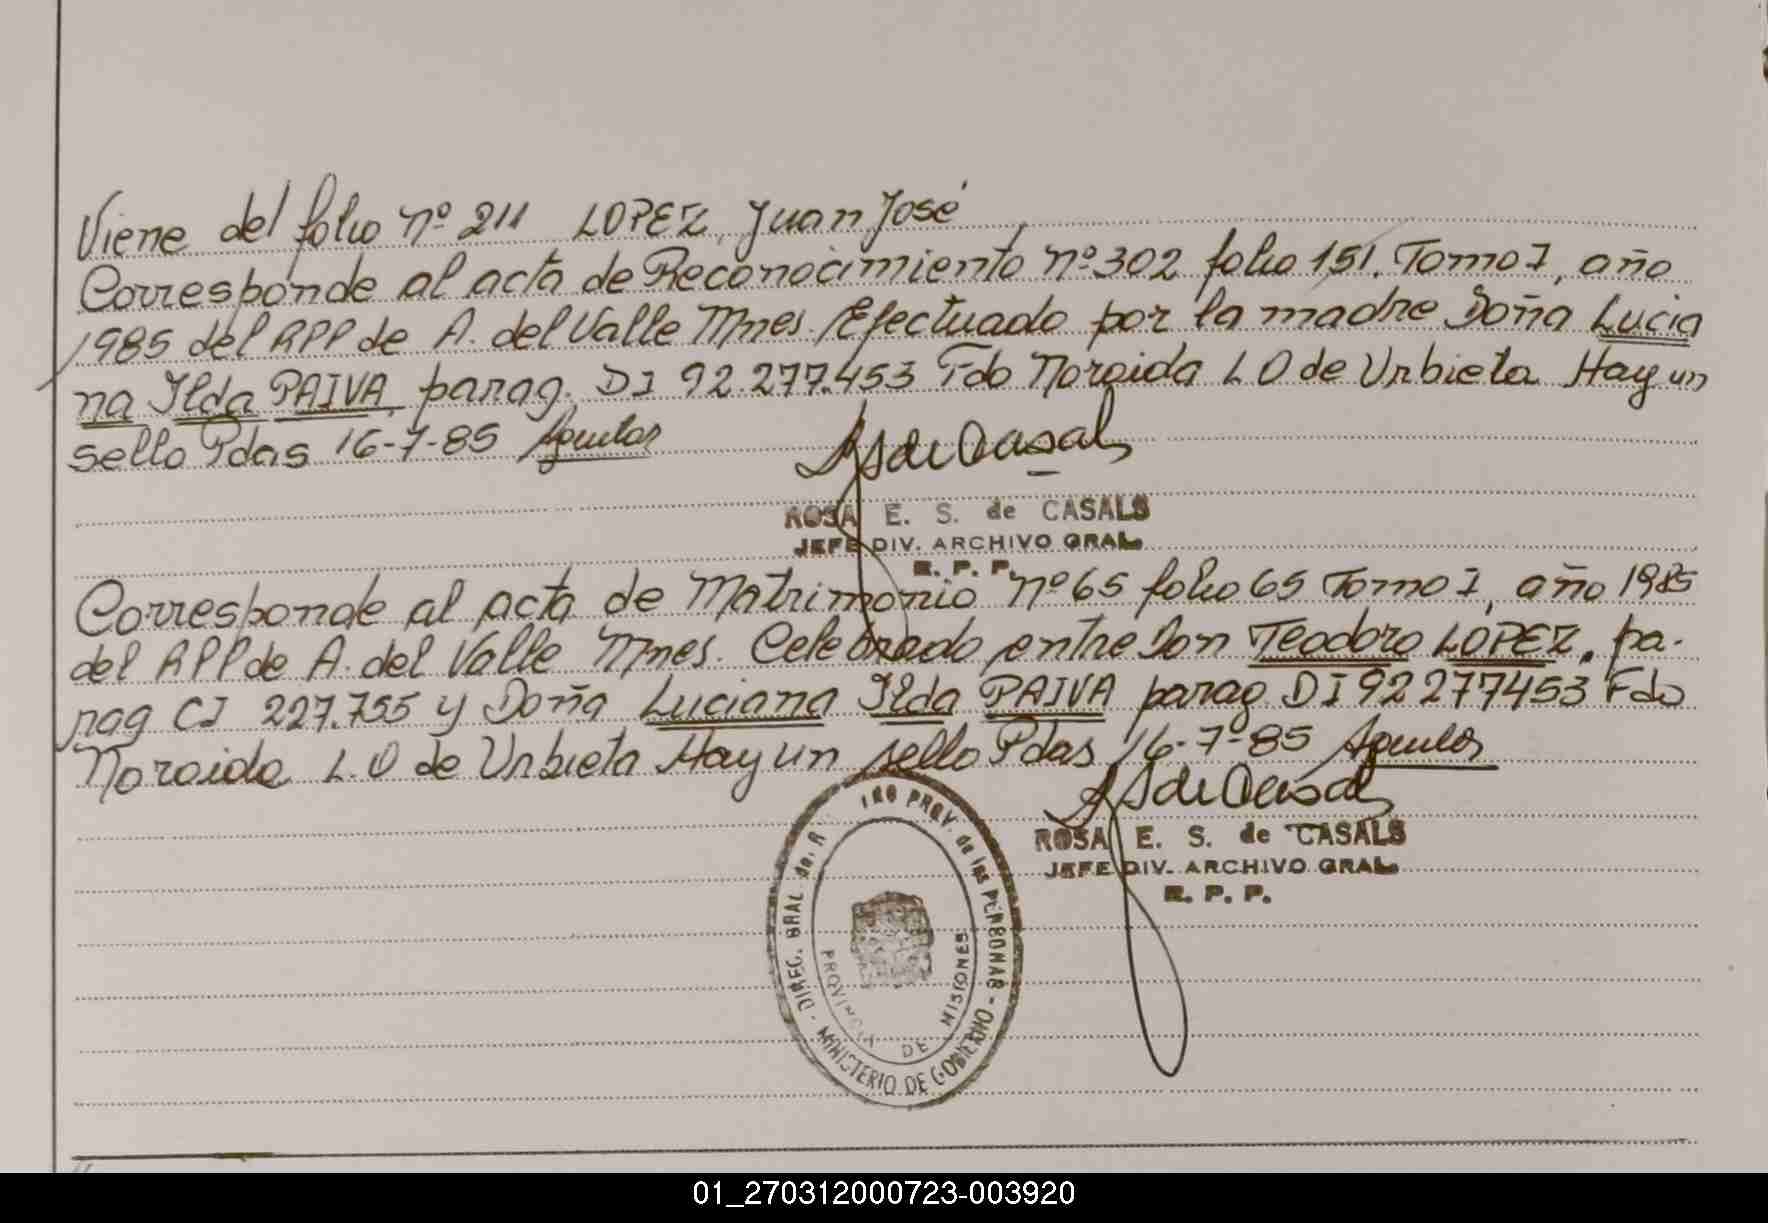 Viene del folio nº 211 LOPEZ, Juan José
Corresponde al acta de Reconocimiento nº 302 folio 151. Tomo I, año
1985 del RPP de A. del Valle Mnes. Efectuado por la madre Doña Lucia
na Ilda PAIVA, parag. DI 92.277.453 Fdo Noroida L O de Urbieta Hay un
sello Pdas 16-7-85 Aguilar
ROSA E. S. de CASALS
JEFE DIV. ARCHIVO GRAL
R. P. P.
Corresponde al acta de Matrimonio nº 65 folio 65 Tomo I, año 1985
del RPP de A. del Valle Mnes. Celebrado entre Don Teodoro LOPEZ, pa-
rag CI 227.755 y Doña Luciana Ilda PAIVA parag DI 92277453 Fdo
Noroida L. O de Urbieta Hay un sello Pdas 16-7-85 Aguilar
ROSA E. S. de CASALS
JEFE DIV. ARCHIVO GRAL
R. P. P.
DIREC. GRAL de. R PROV. de las PERSONAS - MINISTERIO DE GOBIERNO -
PROVINCIA DE MISIONES
01_270312000723-003920